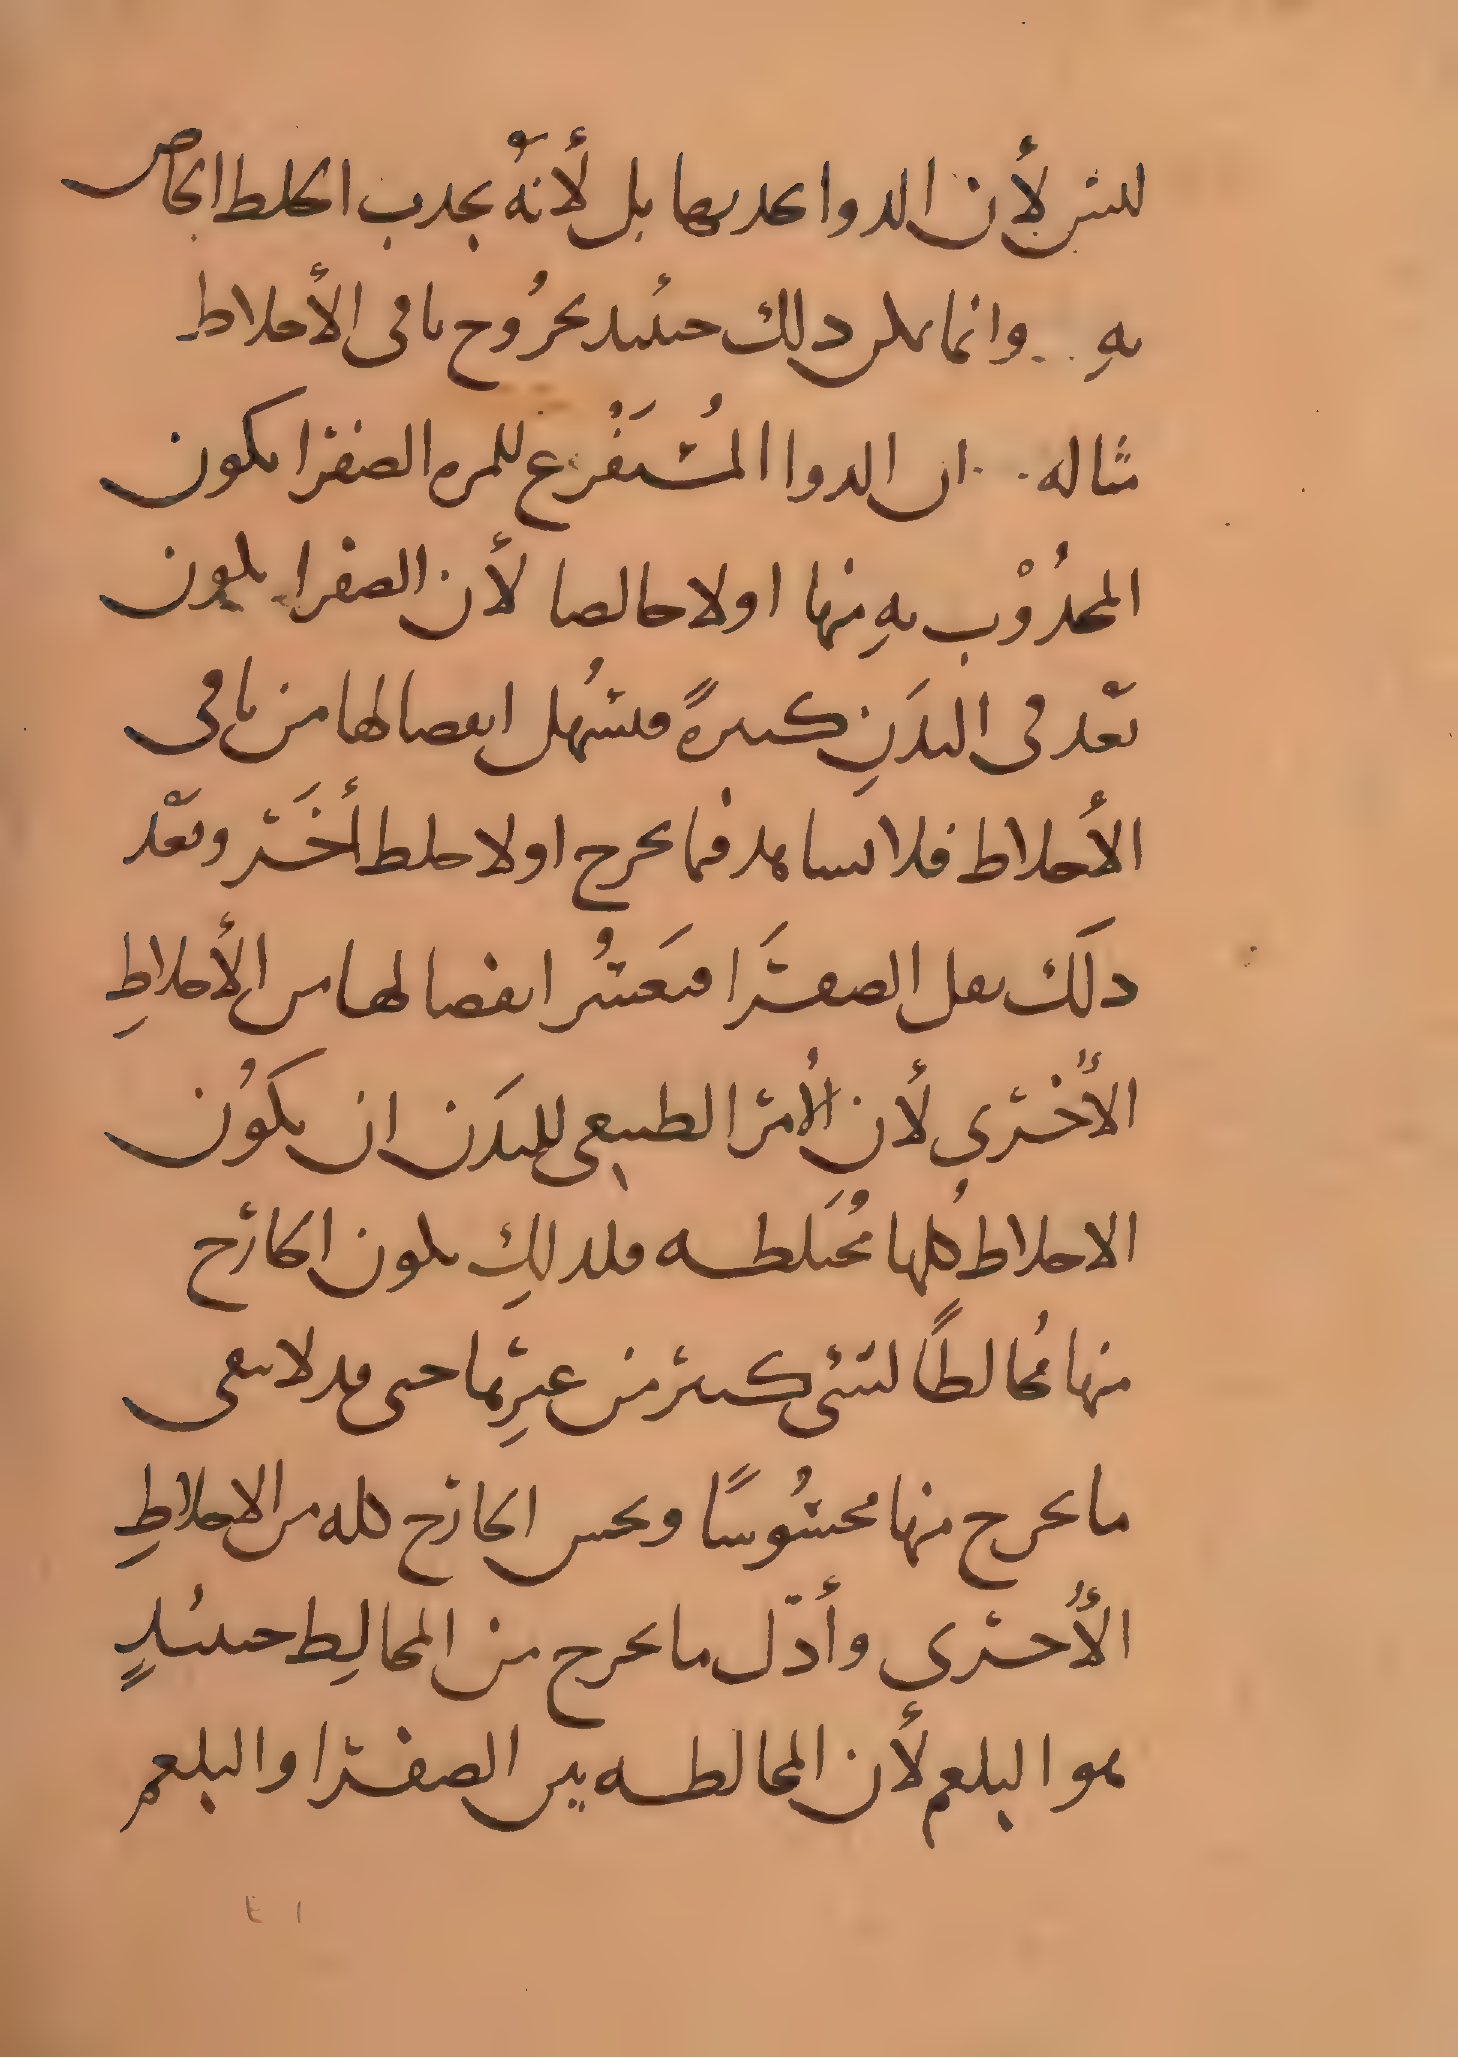 ليس لأن الدوا يجذبها بل لأنهُ يجدب الخلط الخاص
بهِ وانما يكن ذلك حينئذ بخرُوج باقى الأخلاط
مثاله ان الدوا المُستفرغ للمره الصفرا يكون
المجذُوب بهِ منها اولا خالصا لأن الصفرا يكون
بَعْد فى البدَنِ كثيرةً فيسهُل انفصالها من باقى
الأخلاط فلا نشاهد فيما يخرج اولا خلط أخَر وبعْد
ذلَك يقل الصفرَا فيَعسُر انفصالها من الأخلاطِ
الأُخرى لأن الأمر الطبيعى للبدَن ان يكوُن
الاخلاط كُلها مُختَلطه فلذلكِ يكون الخارج
منها مُخالطًا لشئ كثير من غيرِها حتى قد لا يبقى
ما يخرج منها محسُوسًا ويحس الخارج كله من الاخلاطِ
الأُخرى وأول ما يخرج من المخالِط حينئذٍ
هو البلغم لأن المخالطه بين الصفرا والبلغم